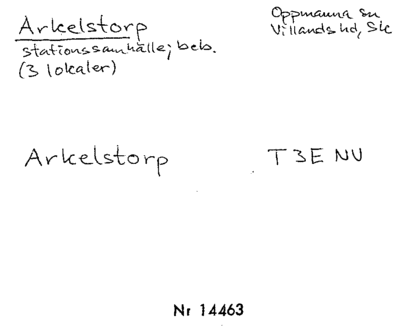 Arkelstorp
stationssamhälle; beb.
(3 lokaler)
Oppmanna sn
Villands hd, Sk
Arkelstorp
T 3E NV
Nr 14463